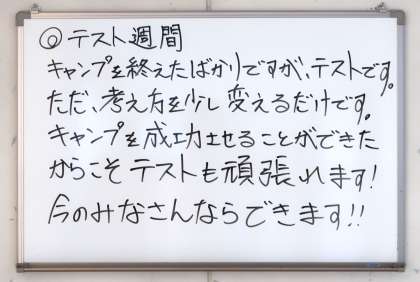 ◎テスト週間
キャンプを終えたばかりですが、テストです。
ただ、考え方を少し変えるだけです。
キャンプを成功させることができた
からこそテストも頑張れます!
今のみなさんならできます!!